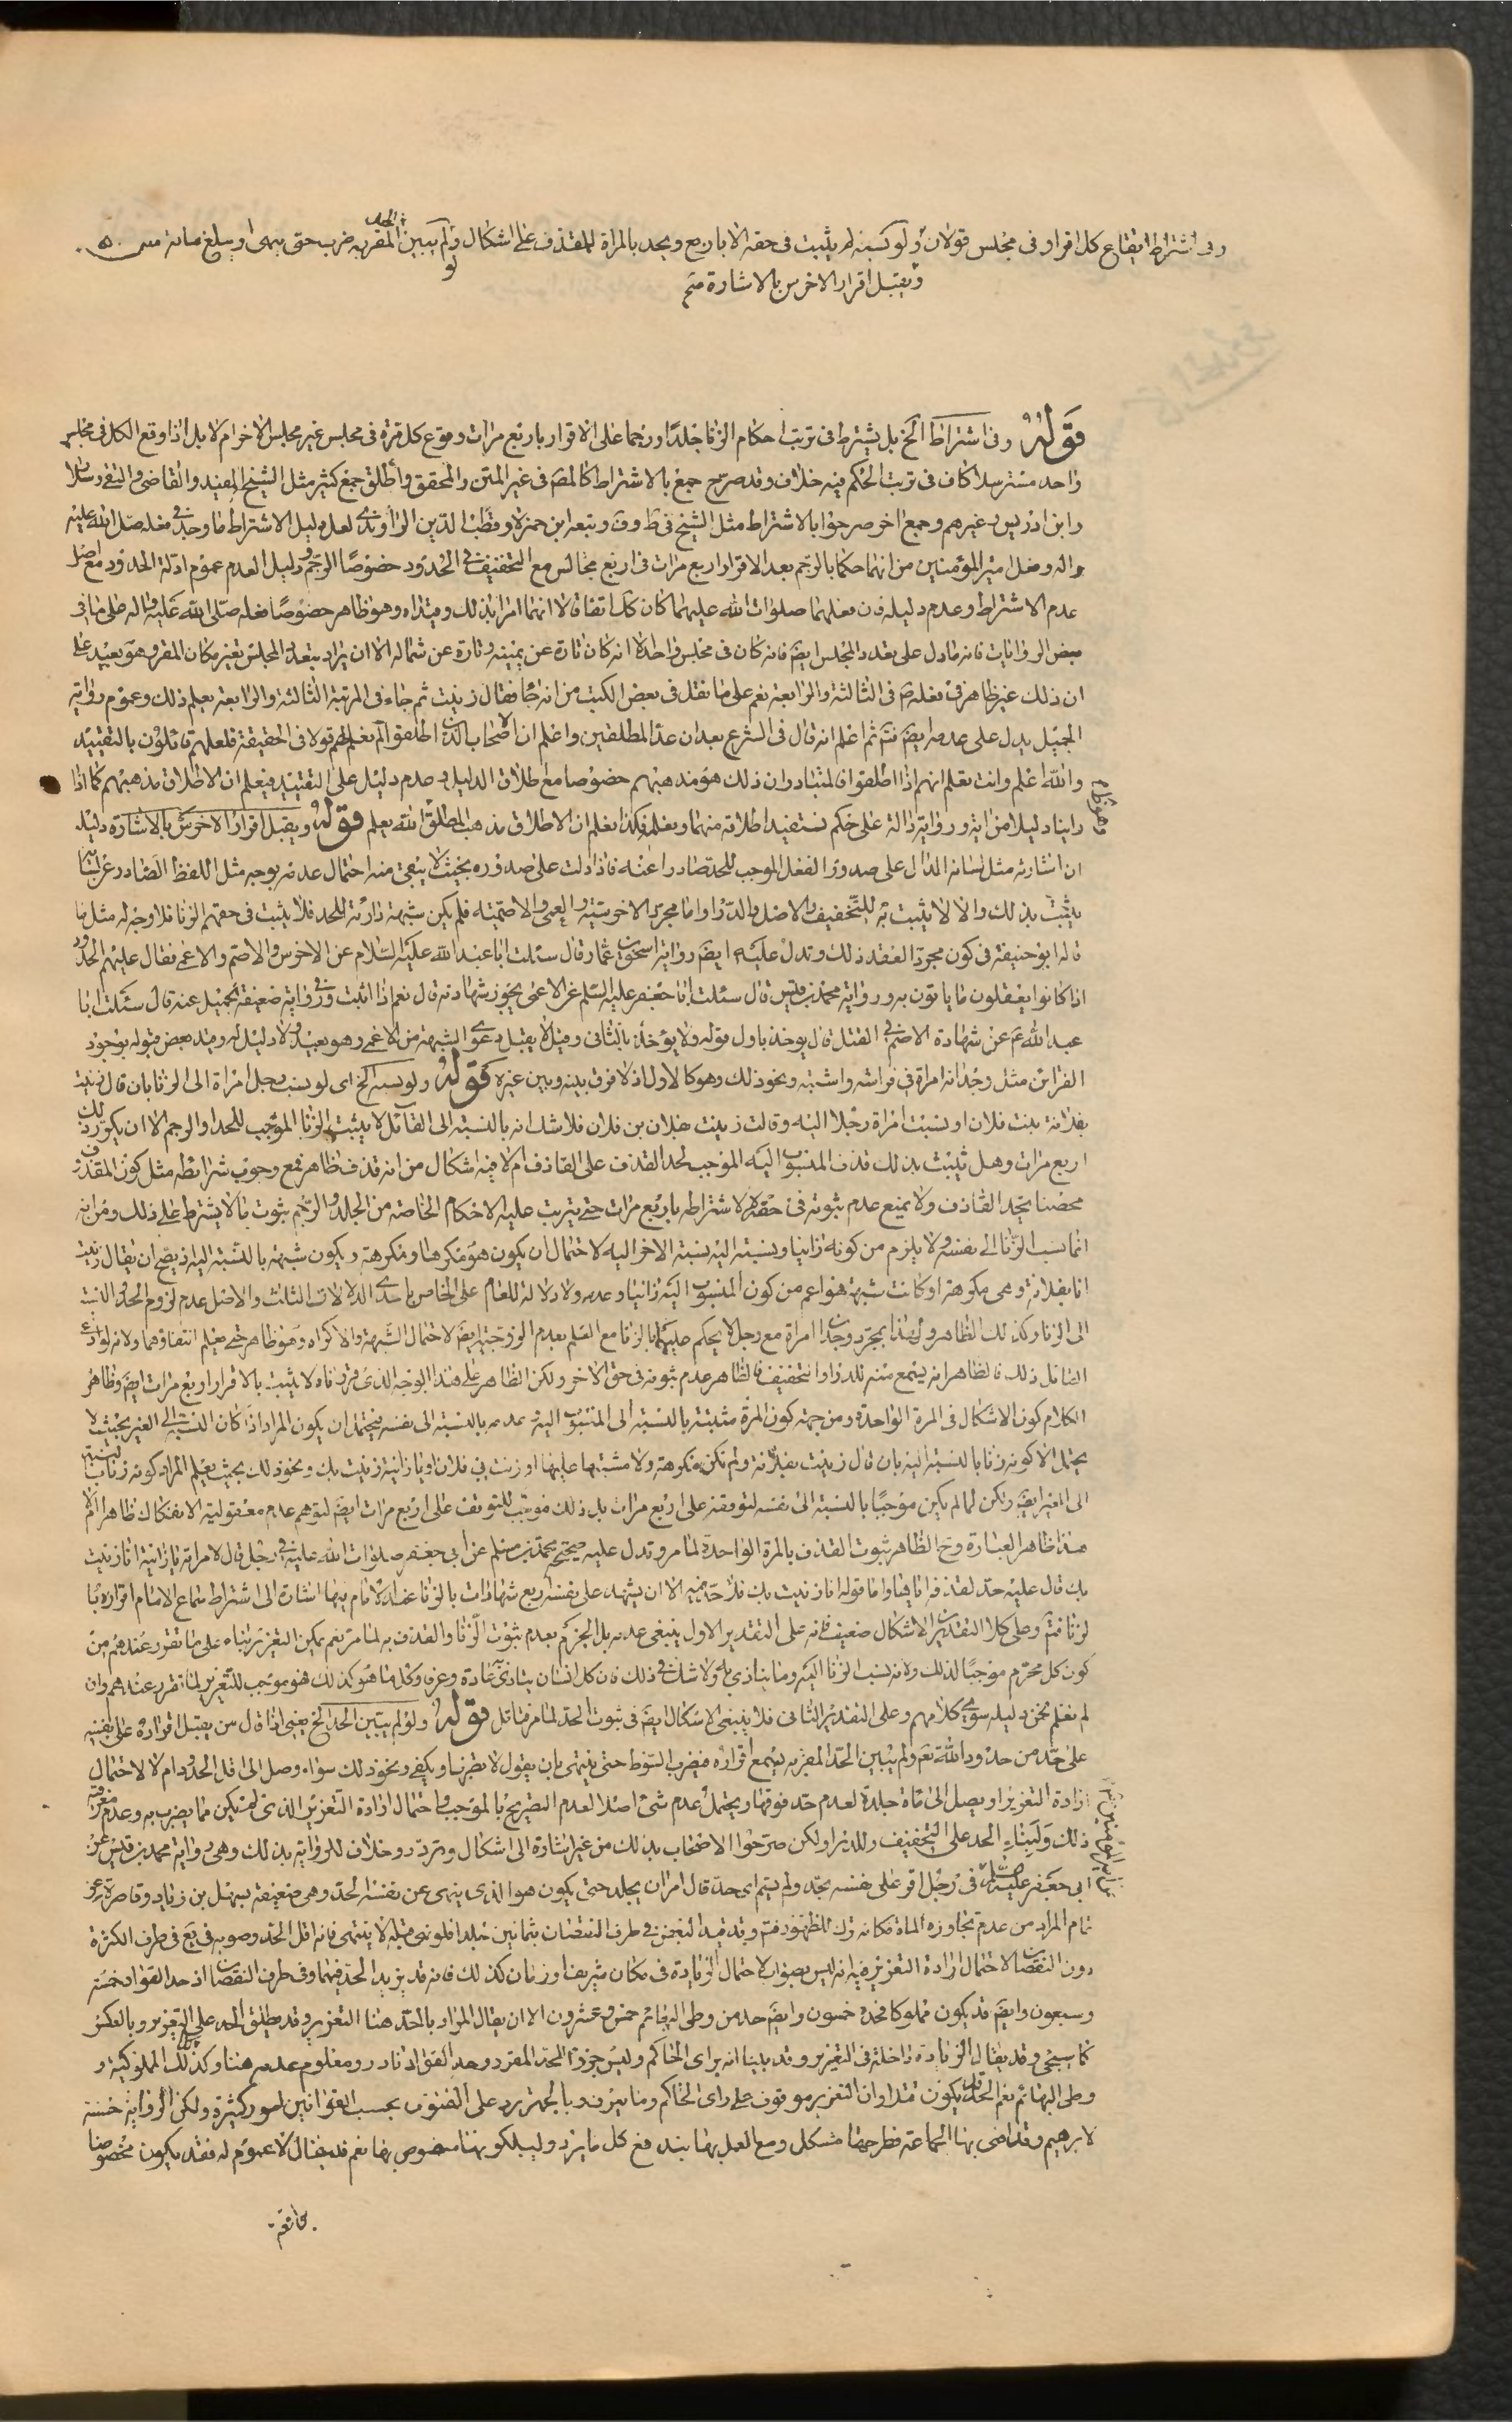 وفى اشتراط ايقاع كل اقرار فى مجلس قولان ولو نسبه لم يثبت فى حقه الا باربع ويحد بالمراة للقذف على اشكال ولو لم يبين الحد المقر به ضرب حتى ينهى او يبلغ مائة
وتقبل اقرار الاخرس بالاشارة
قوله وفى اشتراط الخ بل يشترط فى ترتب احكام الزنا جلدًا ورجما على الاقرار باربع مرات وقوع كل مرة فى مجلس غير مجلس الاخر ام لا بل اذا وقع الكل فى مجلس
واحد مسترسلا كاف فى ترتب الحكم فيه خلاف وقد صرح جمع بالاشتراط كالمصَ فى غير المتن والمحقق واطلق جمع كثير مثل الشيخ المفيد والقاضى والتقى وسلار
وابن ادريس وغيرهم وجمع اخر صرحوا بالاشتراط مثل الشيخ فى ط وف وتبعه ابن حمزة وقطب الدين الراوندى لعل دليل الاشتراط ما وجد فى فعله صلى الله عليه
واله وفعل امير المؤمنين من انهما حكما بالرجم بعد الاقرار اربع مرات فى اربع مجالس مع التخفيف فى الحدود خصوصًا الرجم ودليل العدم عموم ادلة الحدود مع اصل
عدم الاشتراط وعدم دليله فان فعلهما صلوات الله عليهما كان كك اتفاقا لا انهما امرا بذلك وقيداه وهو ظاهر خصوصًا فعله صلى الله عليه واله على ما فى
بعض الروايات فانه ما دل على تعدد المجلس ايضَ فانه كان فى مجلس واحد الا انه كان تارة عن يمينه وتارة عن شماله الا ان يراد بتعدد المجلس تغير مكان المقر وهو بعيد على
ان ذلك غير ظاهر فى فعله صَ فى الثالثة والرابعة نعم على ما نقل فى بعض الكتب من انه جاء فقال زنيت ثم جاء فى المرتبة الثالثة والرابعة يعلم ذلك وعموم رواية
الجميل يدل على عدمه ايضَ فتم ثم اعلم انه قال فى الشرح بعد ان عد المطلقين واعلم ان الاصحاب الذين اطلقوا لم نعلم لهم قولا فى الحقيقة فلعلهم قائلون بالتقييد
والله اعلم وانت تعلم انهم اذا اطلقوا فالمتبادر ان ذلك هو مذهبهم خصوصا مع اطلاق الدليل وعدم دليل على التقييد فيعلم ان الاطلاق مذهبهم كما اذا
راينا دليلا من اية ورواية دالة على حكم نستفيد اطلاقه منهما ويعلم فكذا يعلم ان الاطلاق مذهب المطلق الله يعلم قوله ويقبل اقرار الاخرس بالاشارة دليله
ان اشارته مثل لسانه الدال على صدور الفعل الموجب للحد صادرا عنه فاذا دلت على صدوره بحيث لا يبقى منه احتمال عدمه يوجبه مثل اللفظ الصادر عن لسانه
يثبت بذلك والا لا يثبت به للتخفيف والاصل والدرا واما مجرد الاخرسية والعمى والاصمية فلم يكن شبهة دارئة للحد فلا يثبت فى حقهم الزنا فلا وجه له مثل ما
قاله ابو حنيفة فى كون مجرد العقد ذلك وتدل عليه ايضَ رواية اسحق بن عمار قال سئلت ابا عبد الله عليه السلام عن الاخرس والاصم والاعمى فقال عليهم الحدود
اذا كانوا يعقلون ما ياتون به ورواية محمد بن قيس قال سئلت ابا جعفر عليه السلم عن الاعمى يجوز شهادته قال نعم اذا اثبت وفى رواية ضعيفة لجميل عنه قال سئلت ابا
عبد الله عَ عن شهادة الاصم فى القتل قال يوخذ باول قوله ولا يؤخذ بالثانى وقيل لا يقبل دعوى الشبهة من الاعمى وهو بعيد ولا دليل له وقيد بعض قبوله بوجود
القراين مثل وجد انه امراة فى فراشه واشتبه ونحو ذلك وهو كالاول اذ لا فرق بينه وبين غيره قوله ولو نسبه الخ اى لو نسب رجل امراة الى الزنا بان قال زنيت
بفلانة بنت فلان او نسبت امراة رجلا اليه وقالت زنيت بفلان بن فلان فلا شك انه بالنسبة الى القائل لا يثبت الزنا الموجب للحد او الرجم الا ان يكون ذلك
اربع مرات وهل يثبت بذلك قذف المنسوب اليه الموجب لحد القذف على القاذف ام لا فيه اشكال من انه قذف ظاهر فمع وجوب شرائطه مثل كون المقذوف
محصنا يحد القاذف ولا يمنع عدم ثبوته فى حقه لاشتراطه باربع مرات حتى يترتب عليه الاحكام الخاصة من الجلد والرجم ثبوت ما لا يشترط على ذلك ومن انه
انما نسب الزنا الى نفسه ولا يلزم من كونه زانيا ونسبته اليه نسبة الاخر اليه لاحتمال ان يكون هو مكرها ومكرهة ويكون شبهة بالنسبة اليه اذ يصح ان يقال زنيت
انا بفلانة وهى مكرهة او كانت شبهة فهو اعم من كون المنسوب اليه زانيا وعدمه ولا دلالة للعام على الخاص باحدى الدلالات الثلث والاصل عدم لزوم الحد والنسبة
الى الزنا وكذلك الظاهر ولهذا بمجرد وجدان امراة مع رجل لا يحكم عليهما بالزنا مع العلم بعدم الزوجية ايضَ لاحتمال الشبهة والاكراه وهو ظاهر حتى يعلم انتفاؤهما ولانه لو ادعى
القائل ذلك فالظاهر انه يسمع منه للدراو التخفيف فالظاهر عدم ثبوته فى حق الاخر ولكن الظاهر على هذا الوجه الذى قررناه لا يثبت بالاقرار اربع مرات ايضَ وظاهر
الكلام كون الاشكال فى المرة الواحدة ومن جهة كون المرة مثبتة بالنسبة الى المنسوب اليه وعدمه بالنسبة الى نفسه فيحتمل ان يكون المراد اذا كان النسبة الى الغير بحيث لا
يحتمل الا كونه زنا بالنسبة اليه بان قال زنيت بفلانة ولم تكن مكرهة ولا مشتبها عليها او زنت بى فلانة او يا زانية زنيت بك ونحو ذلك بحيث يعلم المراد كونه زنا بالنسبة
الى الغير ايضَ ولكن لما لم يكن موجبًا بالنسبة الى نفسه لتوقفه على اربع مرات بل ذلك موجب للتوقف على اربع مرات ايضَ لتوهم عدم معقولية الانفكاك ظاهرا لم
هذا ظاهر العبارة وح الظاهر ثبوت القذف بالمرة الواحدة لما مر وتدل عليه صحيحة محمد بن مسلم عن ابى جعفر صلوات الله عليه فى رجل قال لامراته يا زانية انا زنيت
بك قال عليه حد لقذفه اياها واما قوله انا زنيت بك فلا حد فيه الا ان يشهد على نفسه اربع شهادات بالزنا عند الامام فيها اشارة الى اشتراط سماع الامام اقراره با
لزنا فتم وعلى كلا التقديرين الاشكال ضعيف فانه على التقدير الاول ينبغى عدمه بل الجزم بعدم ثبوت الزنا والقذف به لما مر نعم يمكن التعزير بناء على ما تقرر عندهم من
كون كل محرم موجبًا لذلك ولانه نسب الزنا اليه وما يتاذى به ولا شك فى ذلك فان كل انسان يتاذى عادة وعرفا وكل ما هو كذلك فهو موجب للتعزير لما تقرر عندهم وان
لم نعلم نحن دليله سوى كلامهم وعلى التقدير الثانى فلا ينبغى الاشكال ايضَ فى ثبوت الحد لما مر فتامل قوله ولو لم يبين الحد الخ يعنى اذا قال من يقبل اقراره على نفسه
على حد من حدود الله نعَم ولم يبين الحد المقر به يسمع اقراره فيضرب السوط حتى ينتهى بان يقول لا تضربها ويكفى ونحو ذلك سواء وصل الى اقل الحدود ام لا لاحتمال
ارادة التعزير او يصل الى مأة جلدة لعدم حد فوقها ويحتمل عدم شئ اصلا لعدم التصريح بالموجب واحتمال ارادة التعزير الذى لم يكن مما يضرب به وعدم معرفة
ذلك ولبناء الحد على التخفيف وللدرا ولكن صرحوا الاصحاب بذلك من غير اشارة الى اشكال وتردد وخلاف للرواية بذلك وهى رواية محمد بن قيس عن
ابى جعفر عليه السلام فى رجل اقر على نفسه بحد ولم يسم اى حد قال امر ان يجلد حتى يكون هو الذى ينهى عن نفسه الحد وهى ضعيفة بسهل بن زياد وقاصرة عن
تمام المراد من عدم تجاوزه الماة فكانه ترك للظهور فتم وقد قيد البعض فى طرف النقصان بثمانين جلدا فلو نهى قبله لا ينتهى فانه اقل الحد وصوبه فى يع فى طرف الكثرة
دون النقصان لاحتمال ارادة التعزير وفيه انه ليس بصواب لاحتمال الزيادة فى مكان شريف وزمان كذلك فانه قد يزيد الحد فيهما وفى طرف النقصان اذ حد القواد خمسة
وسبعون وايضَ قد يكون مملوكا فحده خمسون وايضَ حد من وطى البهائم خمس وعشرون الا ان يقال المراد بالحد هنا التعزير وقد يطلق الحد على التعزير وبالعكس
كما سيجئ وقد يقال الزيادة داخلة فى التعزير وقد بينا انه براى الحاكم وليس جزؤ الحد المقرر وحد القواد نادر ومعلوم عدمه هنا وكذلك المملوكية و
وطى البهائم نعم الحد قد يكون مقدارا وان التعزير موقوف على راى الحاكم وبالجملة يرد على الفتوى بحسب القوانين امور كثيرة ولكن الرواية حسنة
لابرهيم وقد افتى بها الجماعة فطرحها مشكل ومع العمل بها يندفع كل ما يرد وليكن هنا مخصوص بها نعم قد يقال لا عموم له فقد يكون مخصوصا